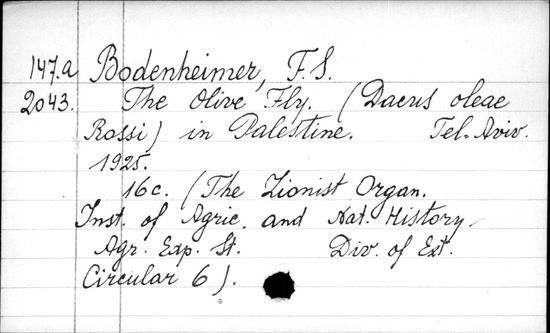 147.a Bodenheimer, F.S.
2043. The Olive Fly. (Dacus oleae
Rossi) in Palestine. Tel-Aviv.
1925.
16c. (The Zionist Organ.
Inst. of Agric. and Nat. History
Agr. Exp. St. Div. of Ext.
Circular 6).